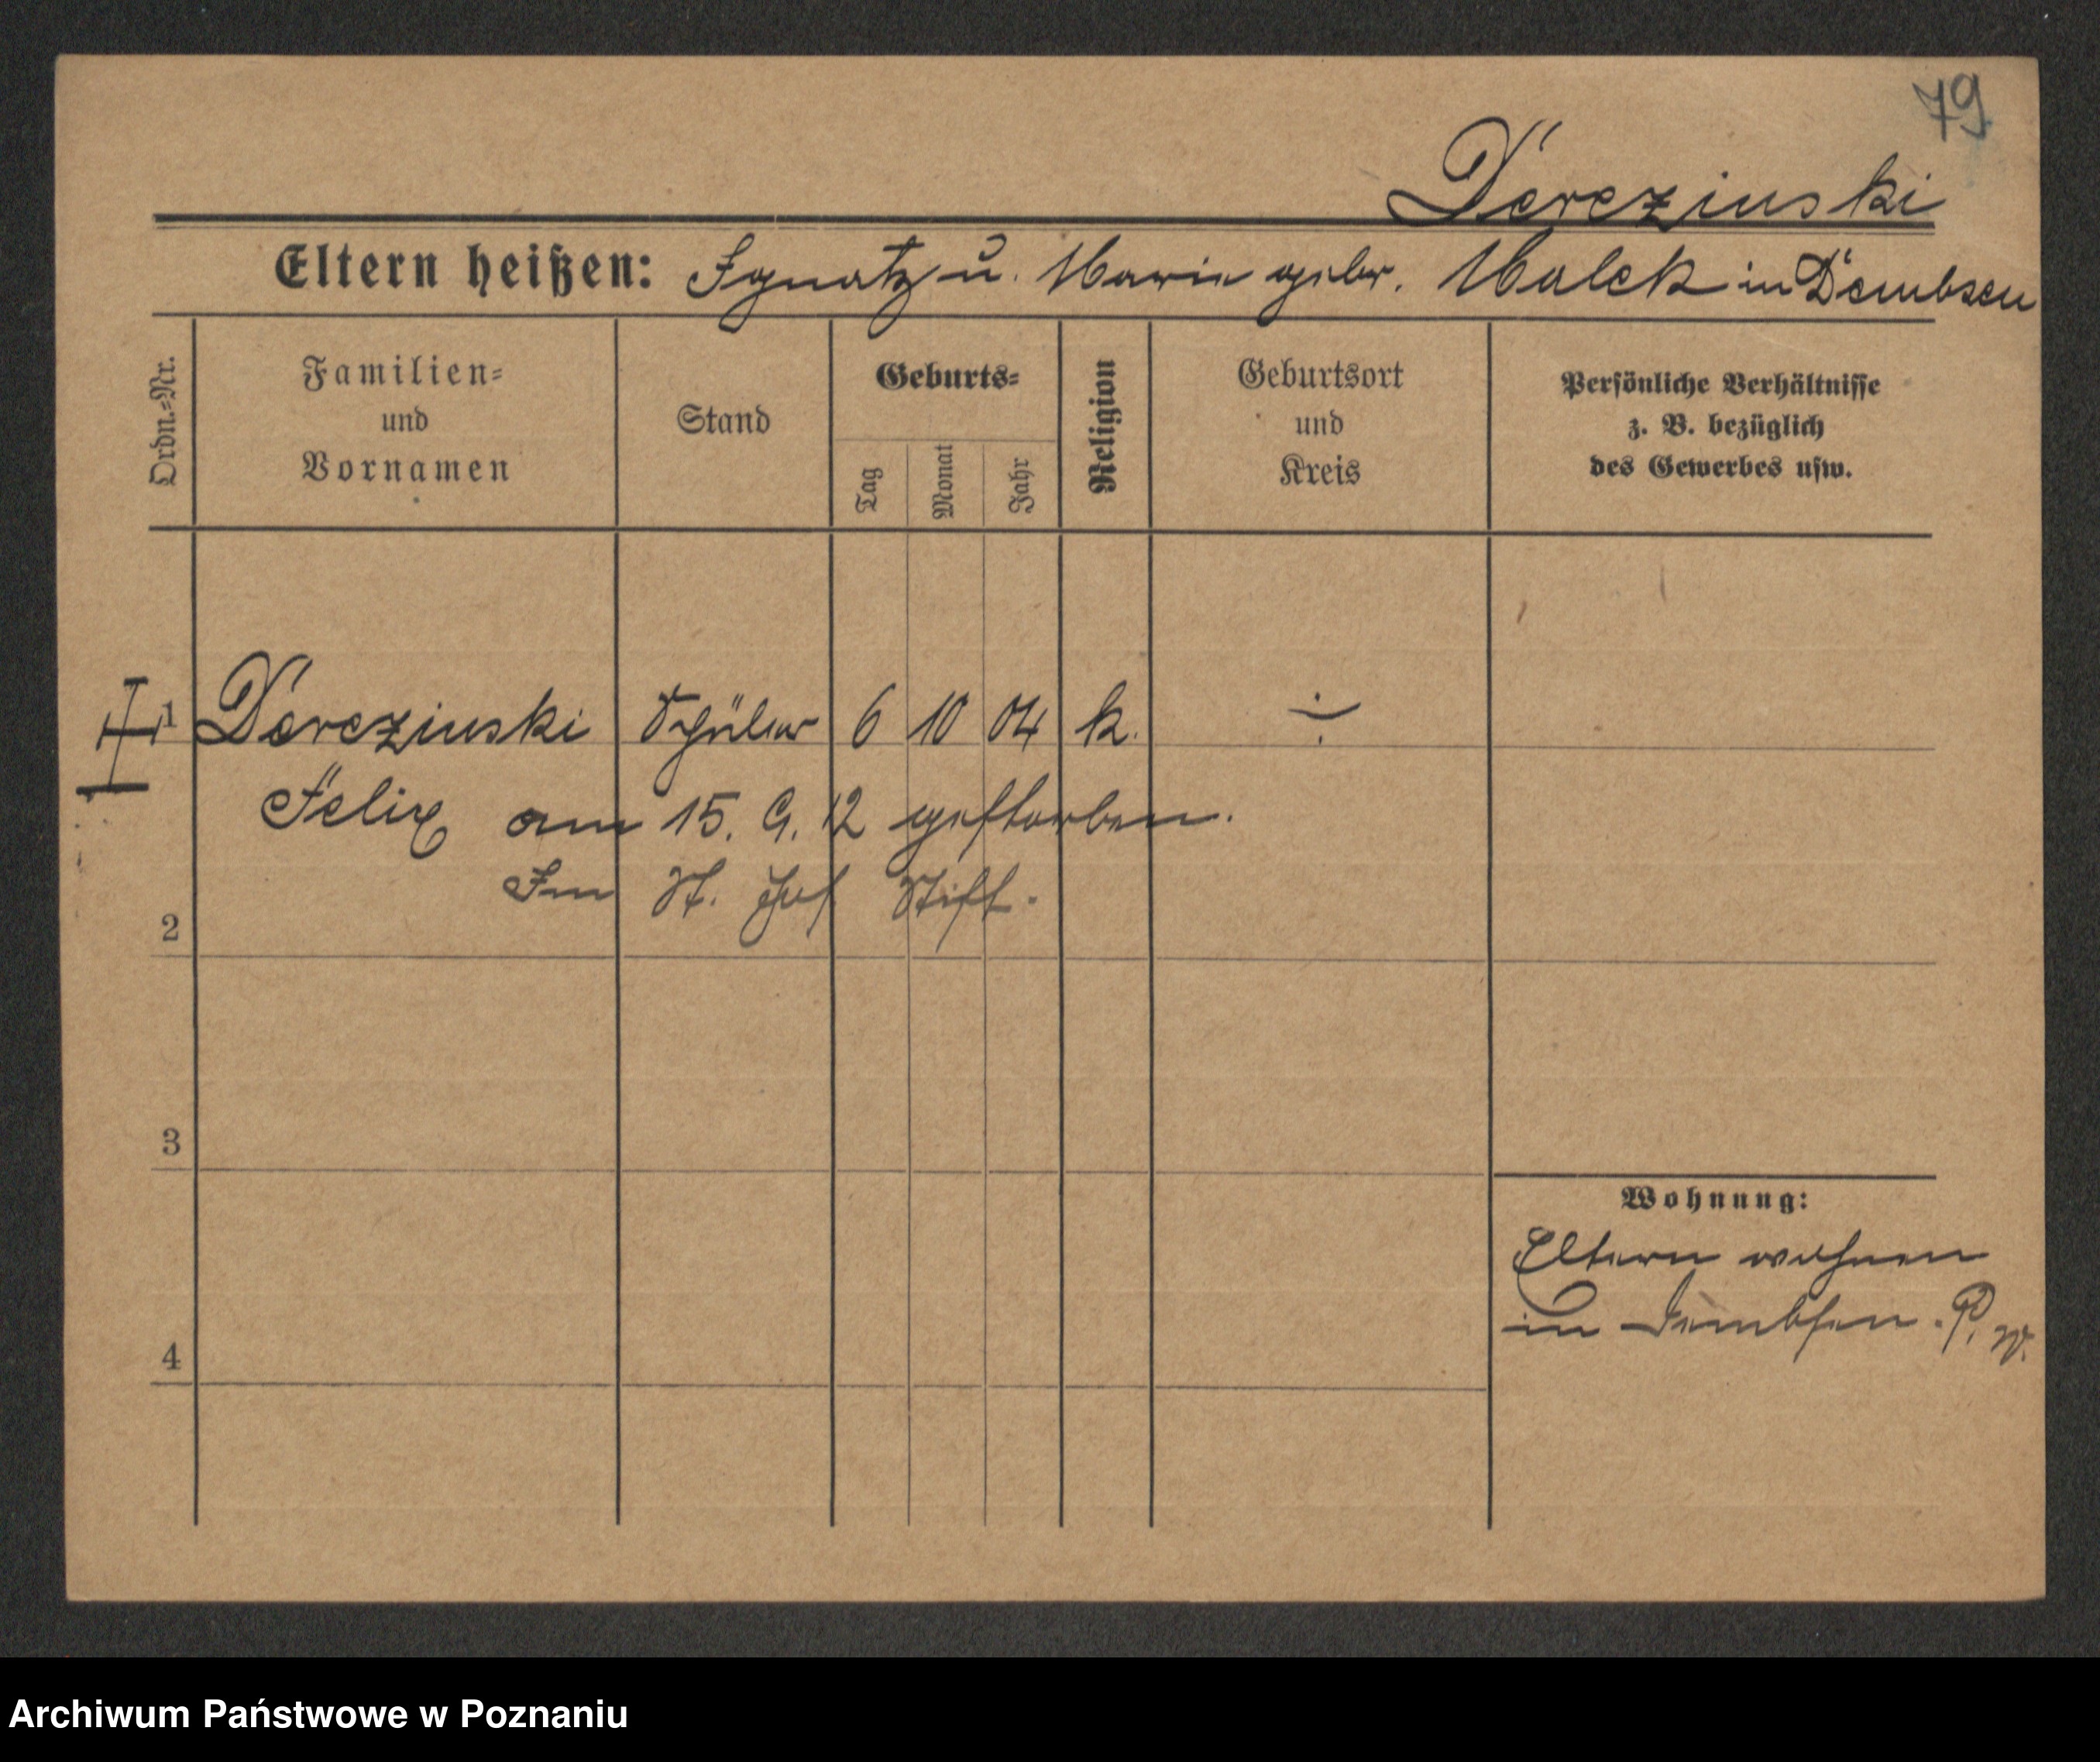 79
Derezinski
Eltern heißen: Ignatz u. Marie geb. Malek in Dembsen
Ordn.-Nr.
Familien-
und
Vornamen
Stand
Geburts-
Tag
Monat
Jahr
Religion
Geburtsort
und
Kreis
Persönliche Verhältnisse
z. B. bezüglich
des Gewerbes usw.
1 Derezinski Schüler 6 10 04 k. ÷
Felix am 15. 9. 12 gestorben.
Im St. Stift.
2
3
4
Wohnung:
Eltern wohnen
in Dembsen. P. W.
Archiwum Państwowe w Poznaniu